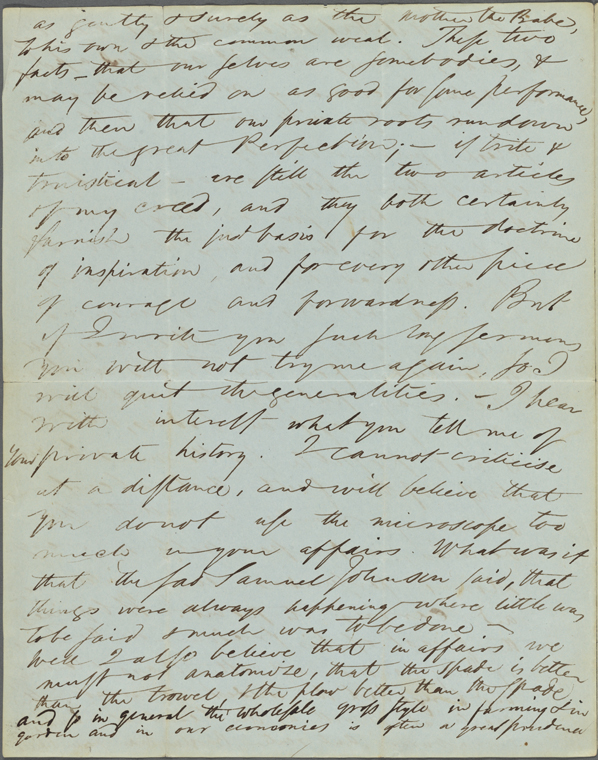 as gently & surely as the mother the Babe,
to his own & the common weal. These two
facts — that ourselves are somebodies, &
may be relied on as good for some performance,
and then that our private roots run down
into the great Perfection; — if trite &
truistical — are still the two articles
of my creed, and they both certainly
furnish the just basis for the doctrine
of inspiration, and for every other piece
of courage and forwardness. But
if I write you such long sermons,
you will not try me again, so I
will quit the generalities. — I hear
with interest what you tell me of
your private history. I cannot criticise
at a distance, and will believe that
you do not use the microscope too
much in your affairs. What was it
that the sad Samuel Johnson said, that
things were always happening where little was
to be said & much was to be done —
Well I also believe that in affairs we
must not anatomize, that the spade is better
than the trowel & the plow better than the spade,
and so in general the wholesale gross style in farming & in
garden and in our economies is often a great prudence